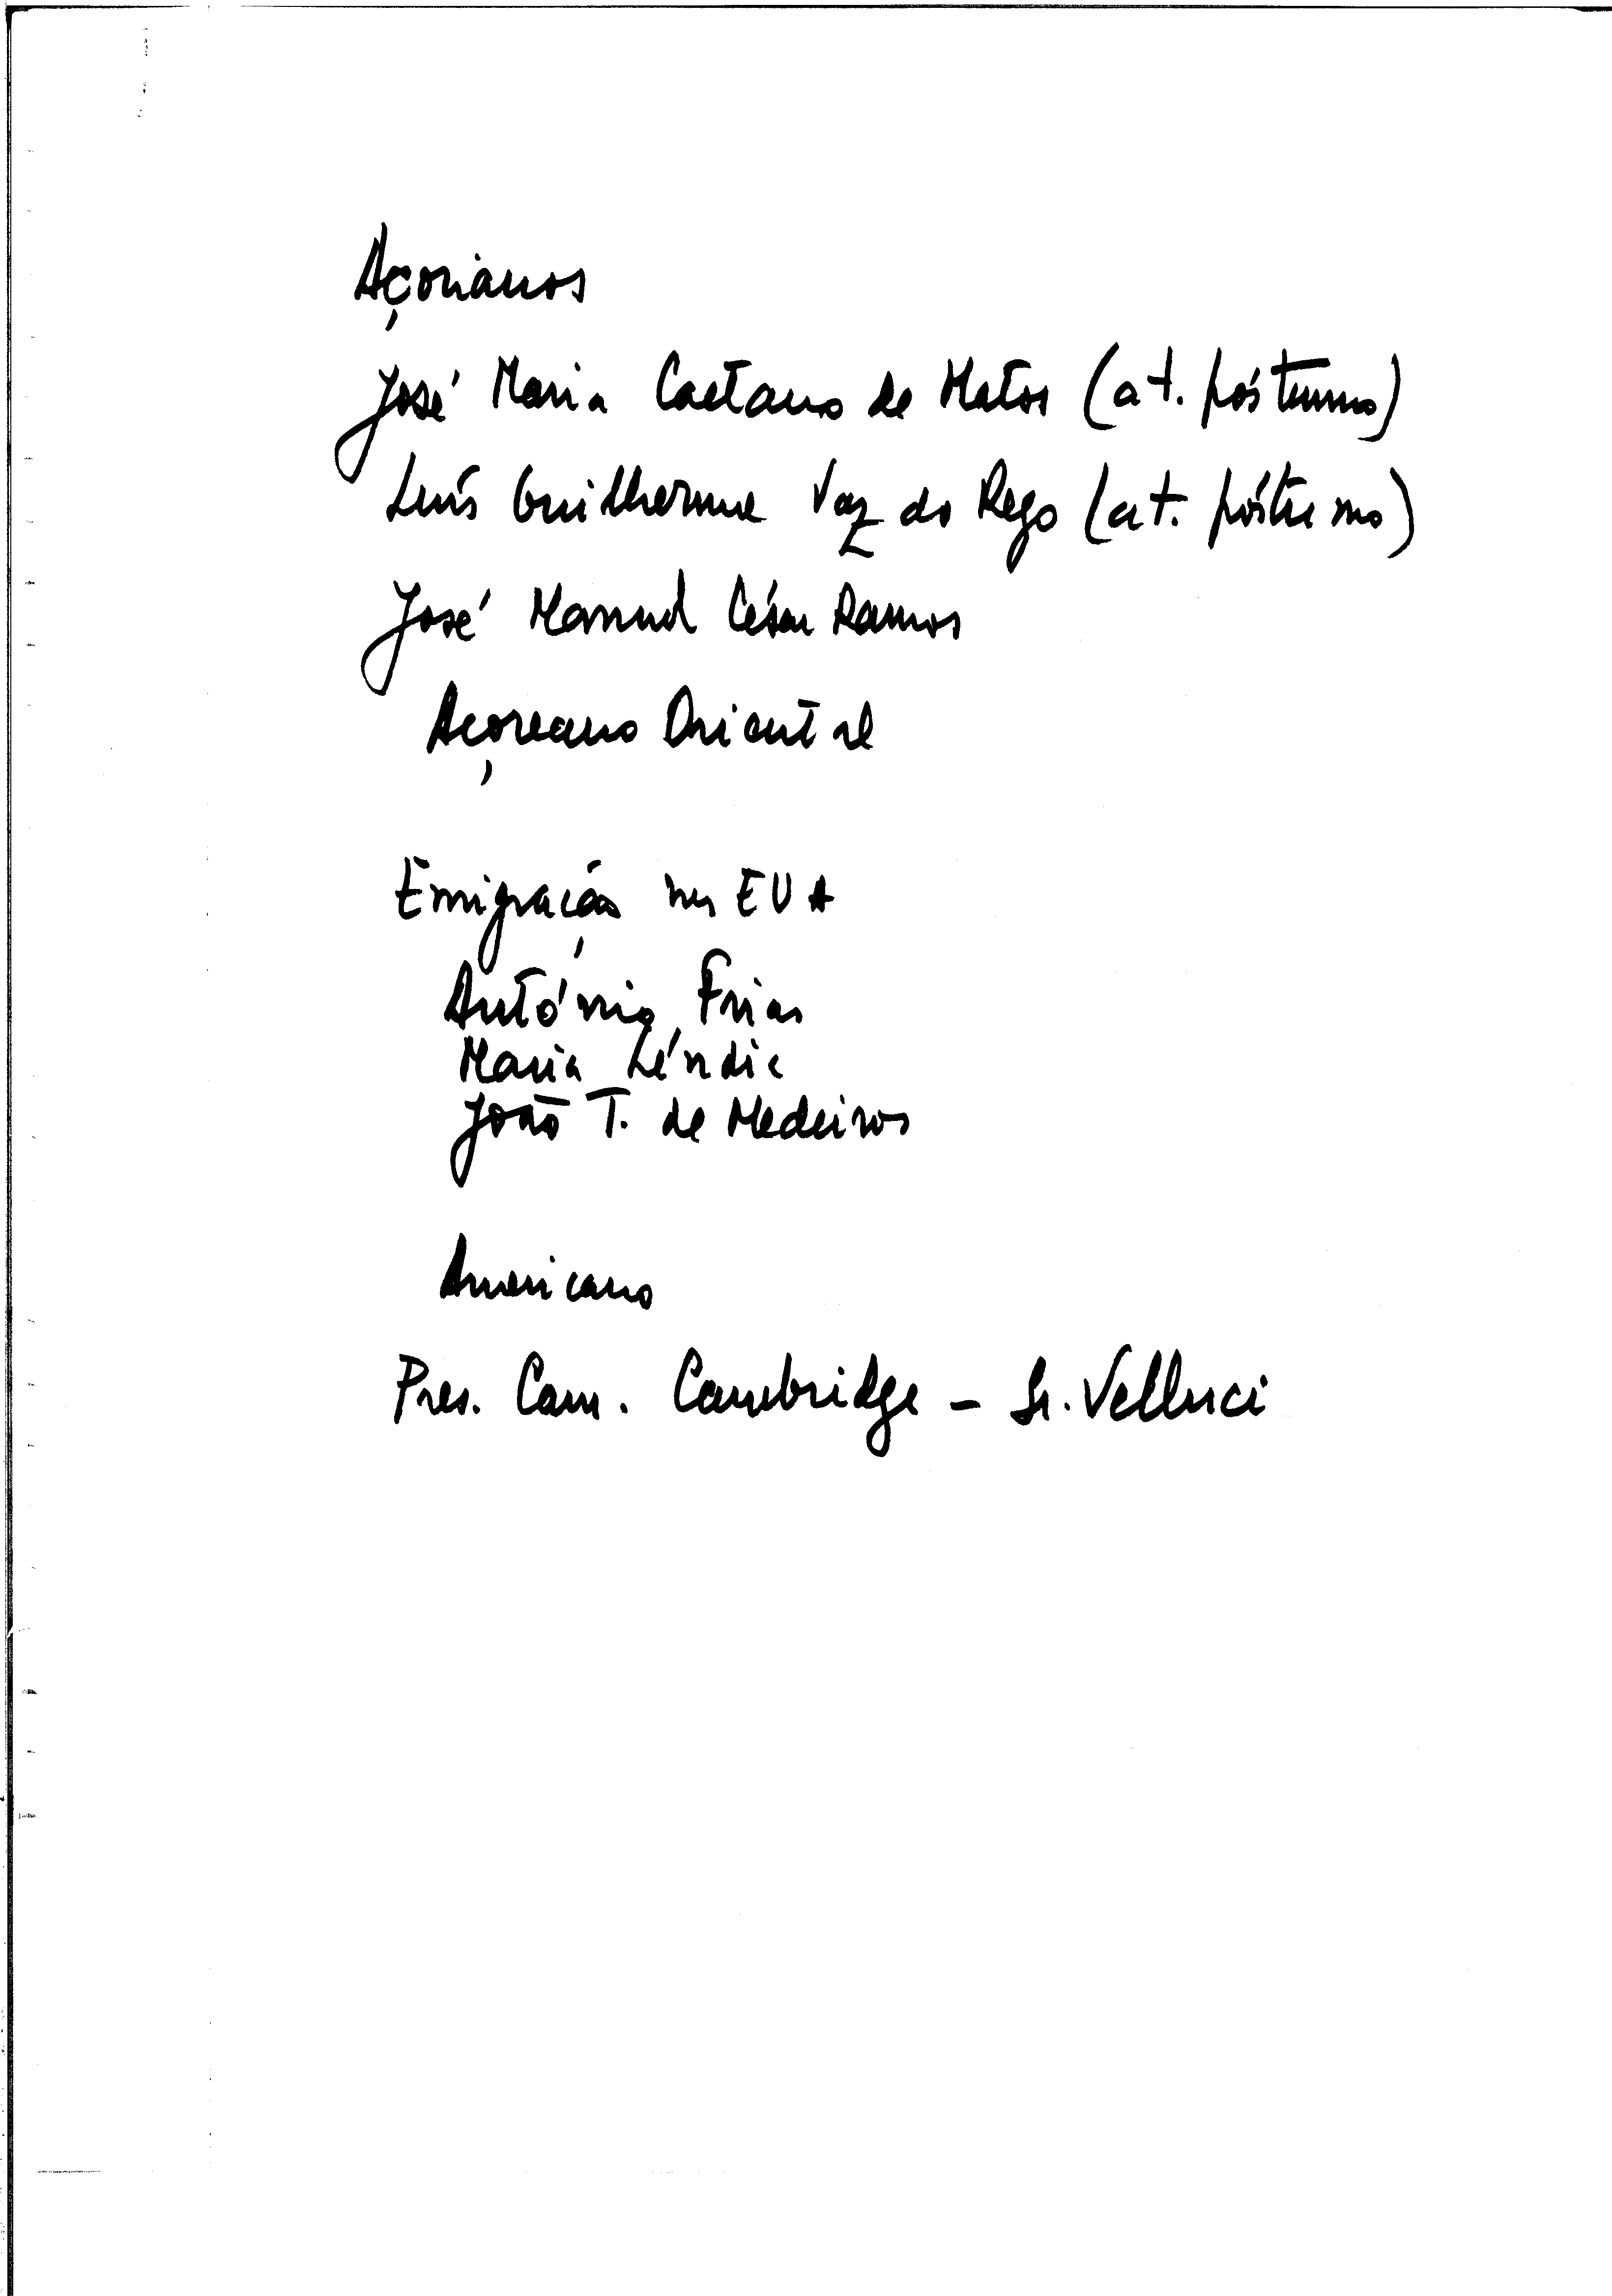 Açorianos
José Maria Caetano de Matos (at. póstumo)
Luís Guilherme Vaz do Rego (at. póstumo)
José Manuel César Ramos
Açoreano Oriental
Emigração nos EUA
António Frias
Maria Léndia
João T. de Medeiros
Americano
Pres. Cam. Cambridge - Sr. Velluci